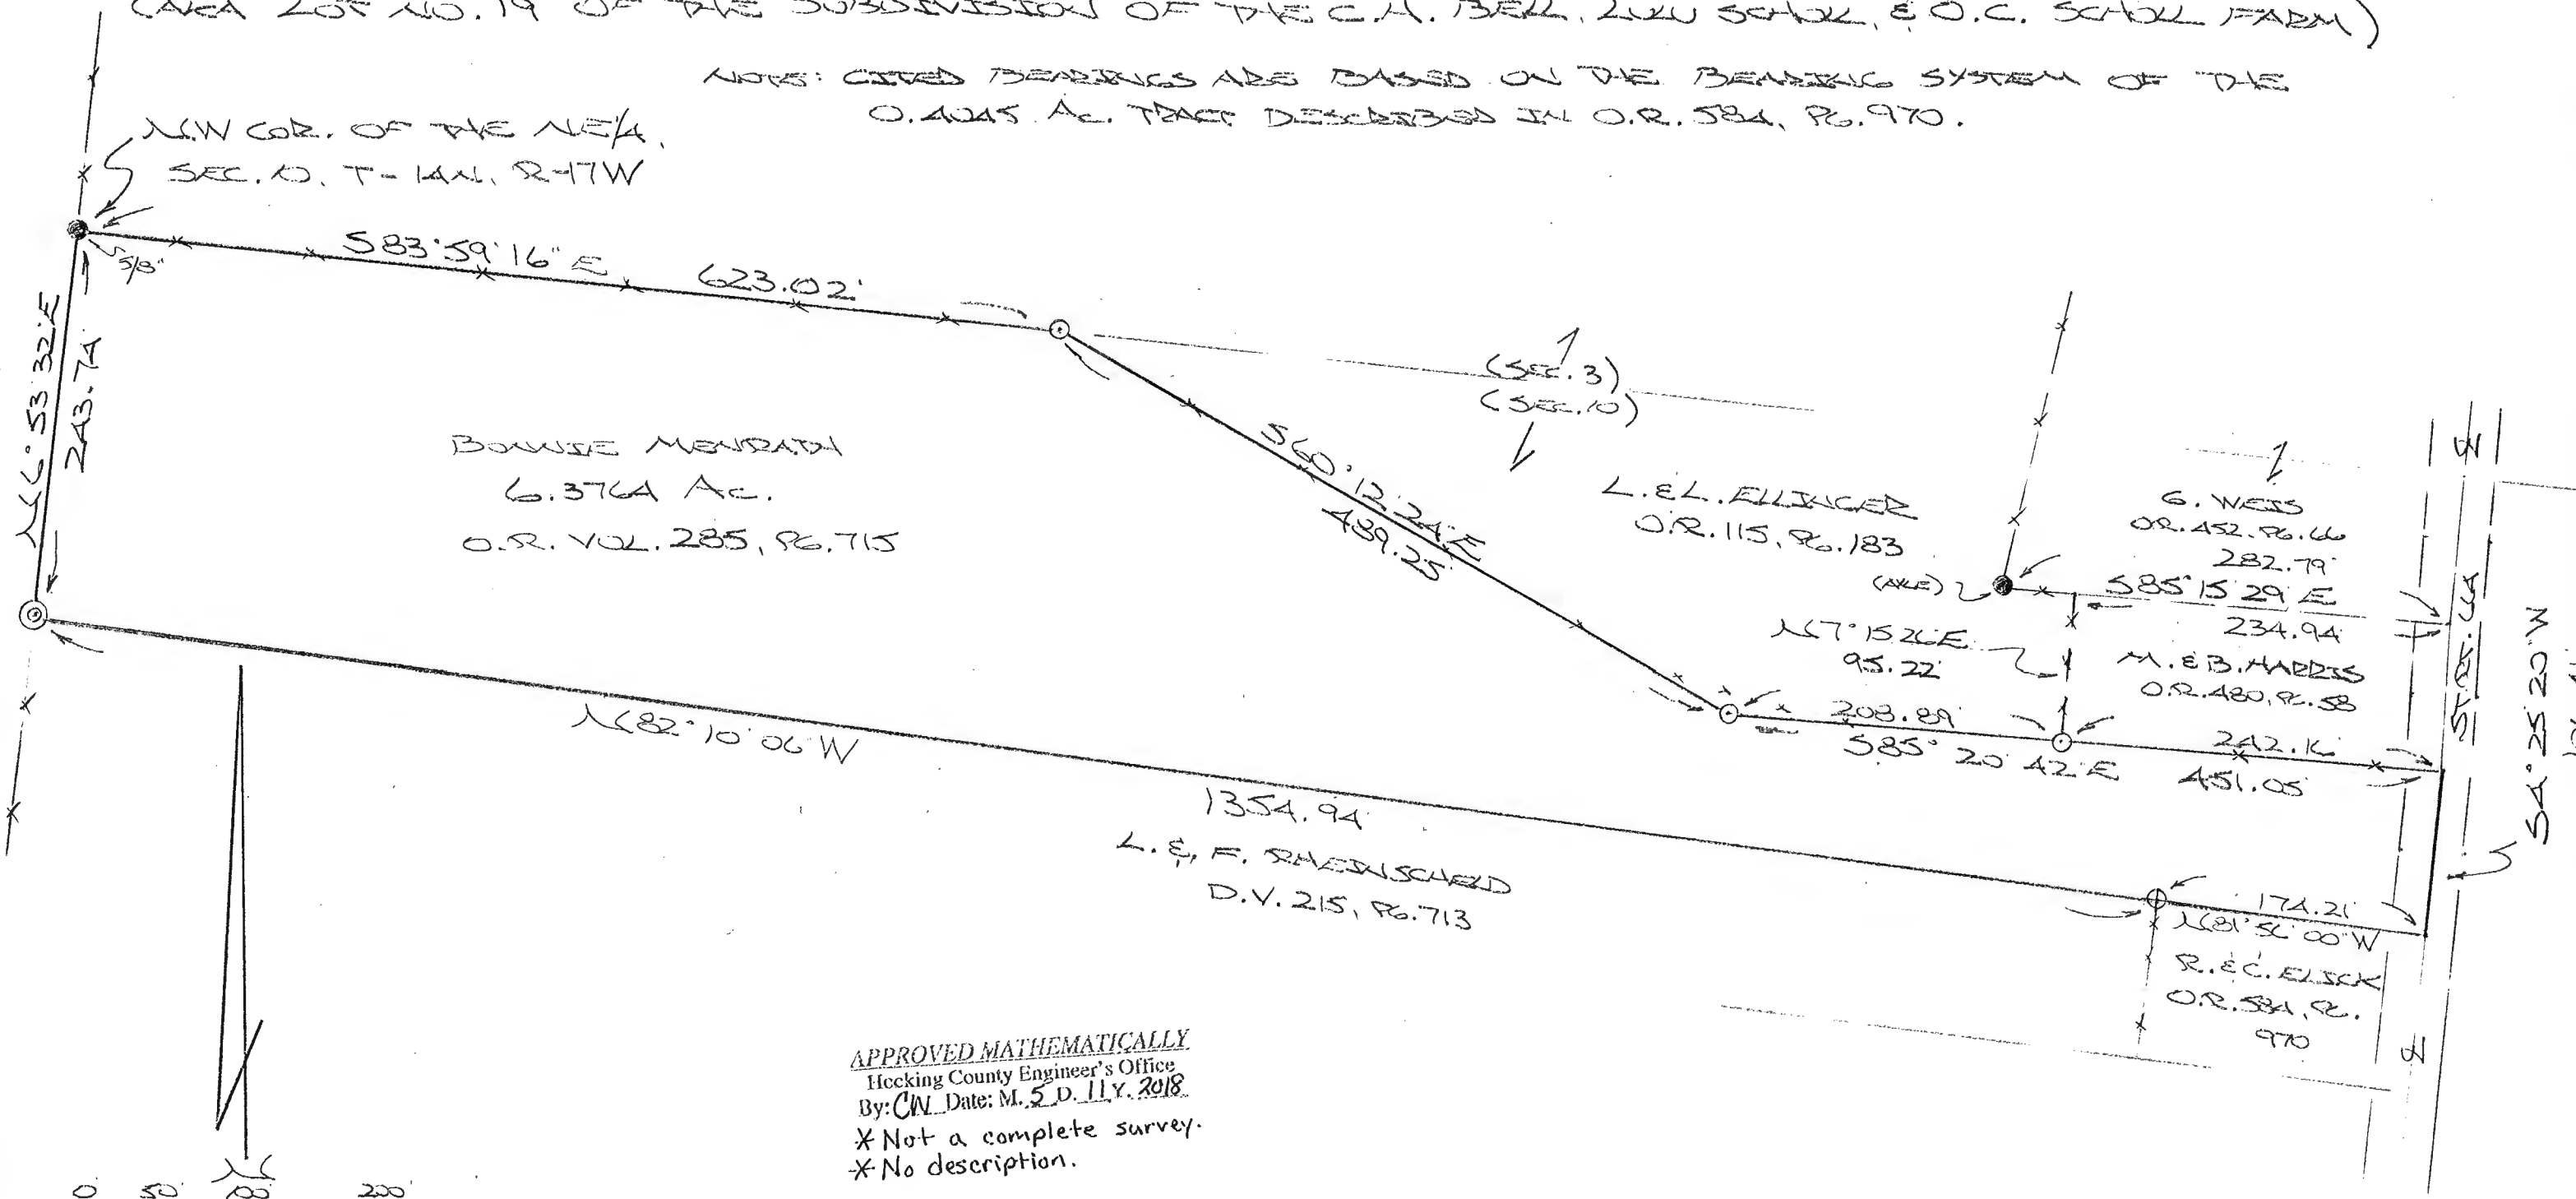 (AKA LOT NO. 19 OF THE SUBDIVISION OF THE C.H. BELL, LULU SCHOLL, & O.C. SCHOLL FARM)
NOTE: CITED BEARINGS ARE BASED ON THE BEARING SYSTEM OF THE
0.4045 Ac. TRACT DESCRIBED IN O.R. 584, PG. 970.
N.W COR. OF THE NE/4,
SEC. 10, T-14N, R-17W
5/8"
S83°59'16"E
623.02'
N6°53'32"E
243.74'
(SEC. 3)
(SEC. 10)
BONNIE MENRATH
6.3764 Ac.
O.R. VOL. 285, PG. 715
S60°12'24"E
489.25'
L. & L. ELLINGER
O.R. 115, PG. 183
G. WEIS
O.R. 452, PG. 66
282.79'
(AXLE)
S85°15'29"E
234.94'
N7°15'26"E
95.22'
M. & B. HARRIS
O.R. 480, PG. 58
208.89'
S85°20'42"E
242.16'
451.05'
S4°25'20"W
N82°10'06"W
1354.94'
L. & F. RHEINSCHELD
D.V. 215, PG. 713
174.21'
N81°56'00"W
R. & C. ELICK
O.R. 584, PG.
970
APPROVED MATHEMATICALLY
Hocking County Engineer's Office
By: CW Date: M. 5 D. 11 Y. 2018
* Not a complete survey.
* No description.
N
0 50' 100' 200'